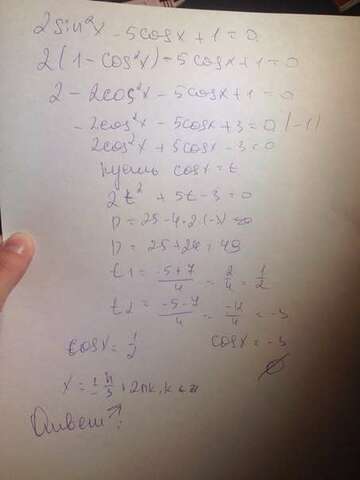 2sin²x - 5cosx + 1 = 0
2(1 - cos²x) - 5cosx + 1 = 0
2 - 2cos²x - 5cosx + 1 = 0
-2cos²x - 5cosx + 3 = 0 |(-1)
2cos²x + 5cosx - 3 = 0
Пусть cosx = t
2t² + 5t - 3 = 0
D = 25 - 4·2·(-3) =
D = 25 + 24 = 49
t1 = (-5+7)/4 = 2/4 = 1/2
t2 = (-5-7)/4 = -12/4 = -3
cosx = 1/2 cosx = -3
x = ± π/3 + 2πk, k ∈ z ∅
Ответ ↑